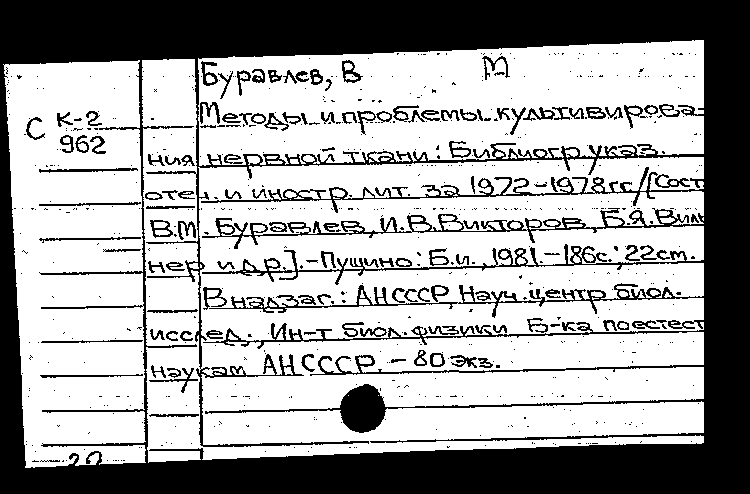 Буравлев, В М
С К-2
962
Методы и проблемы культивирова-
ния нервной ткани: Библиогр. указ.
отеч. и иностр. лит. за 1972-1978гг/[Сост.
В.М. Буравлев, И.В.Викторов, Б.Я.Виль
нер и др.].-Пущино: Б.и., 1981.-186с.; 22см.
В надзаг.: АН СССР, Науч. центр биол.
исслед., Ин-т биол. физики, Б-ка по естест
наукам АН СССР. - 80 экз.